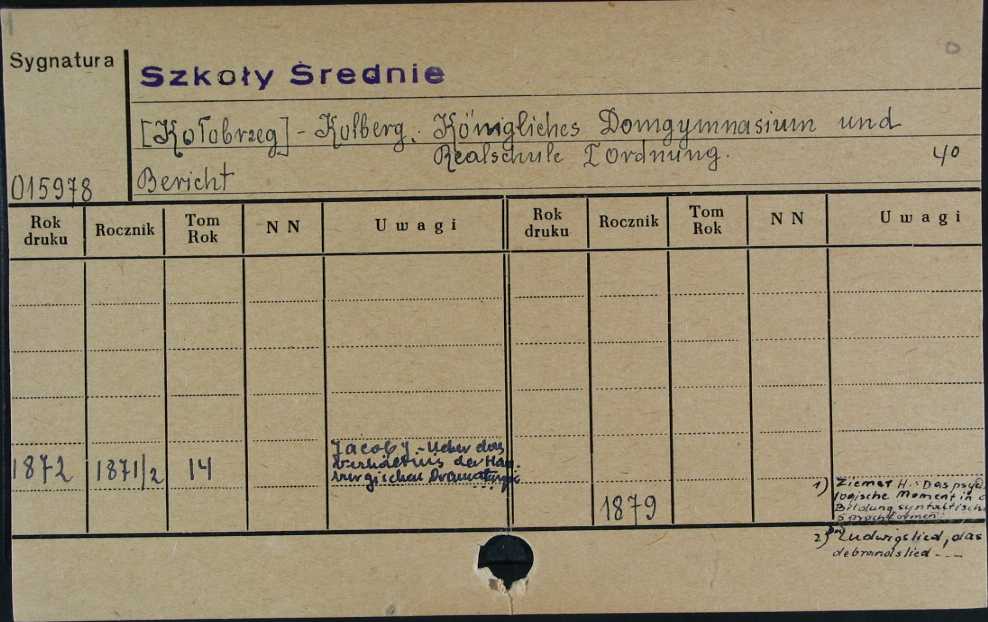 Sygnatura
Szkoły Średnie
[Kołobrzeg] - Kolberg. Königliches Domgymnasium und
Realschule I Ordnung. 4°
015978
Bericht
Rok druku Rocznik Tom Rok N N Uwagi Rok druku Rocznik Tom Rok N N Uwagi
Jacoby - Ueber das
1872 1871/2 14 Verhältnis der Ham-
burgischen Dramaturgie
1879
1) Ziemer H.: Das psycho
logische Moment in d
Bildung syntaktische
Sprachformen.
2) Ludwigslied, das
debrandslied ---